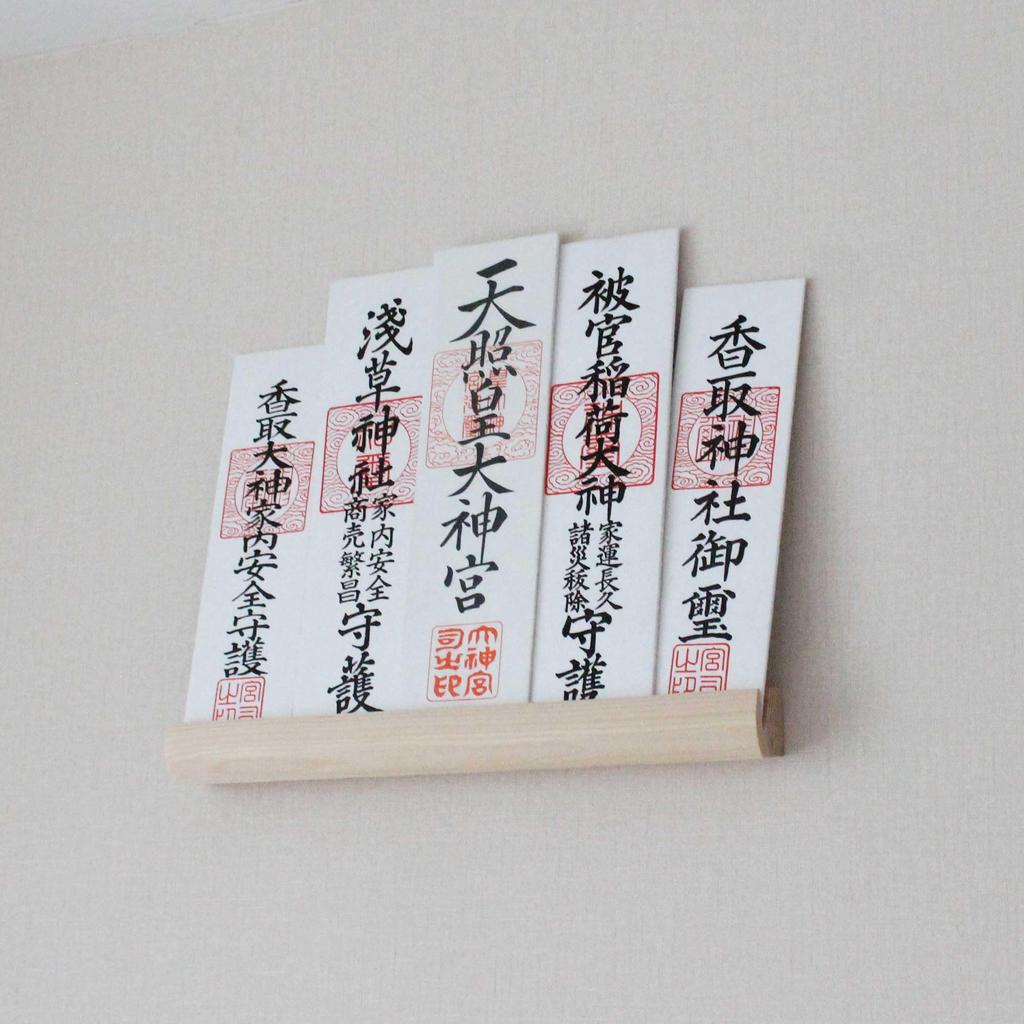 香取大神家内安全守護
淺草神社
家内安全
商売繁昌
守護
天照皇大神宮
大神宮
司之印
被官稲荷大神
家運長久
諸災秡除
守護
香取神社御璽